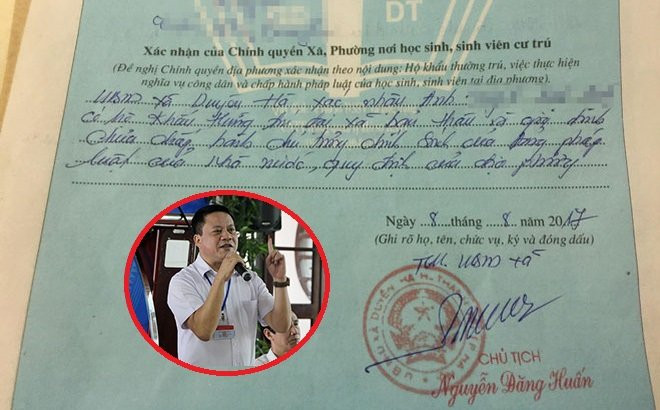 DT
Xác nhận của Chính quyền Xã, Phường nơi học sinh, sinh viên cư trú
(Đề nghị Chính quyền địa phương xác nhận theo nội dung: Hộ khẩu thường trú, việc thực hiện
nghĩa vụ công dân và chấp hành pháp luật của học sinh, sinh viên tại địa phương).
UBND xã Duyên Hà xác nhận
có hộ khẩu thường trú tại xã bản thân và gia đình
chưa chấp hành chủ trương chính sách của pháp
luật của Nhà nước, quy định của địa phương
Ngày 8 tháng 8 năm 2017
(Ghi rõ họ, tên, chức vụ, ký và đóng dấu)
TM. UBND xã
CHỦ TỊCH
Nguyễn Đăng Huấn